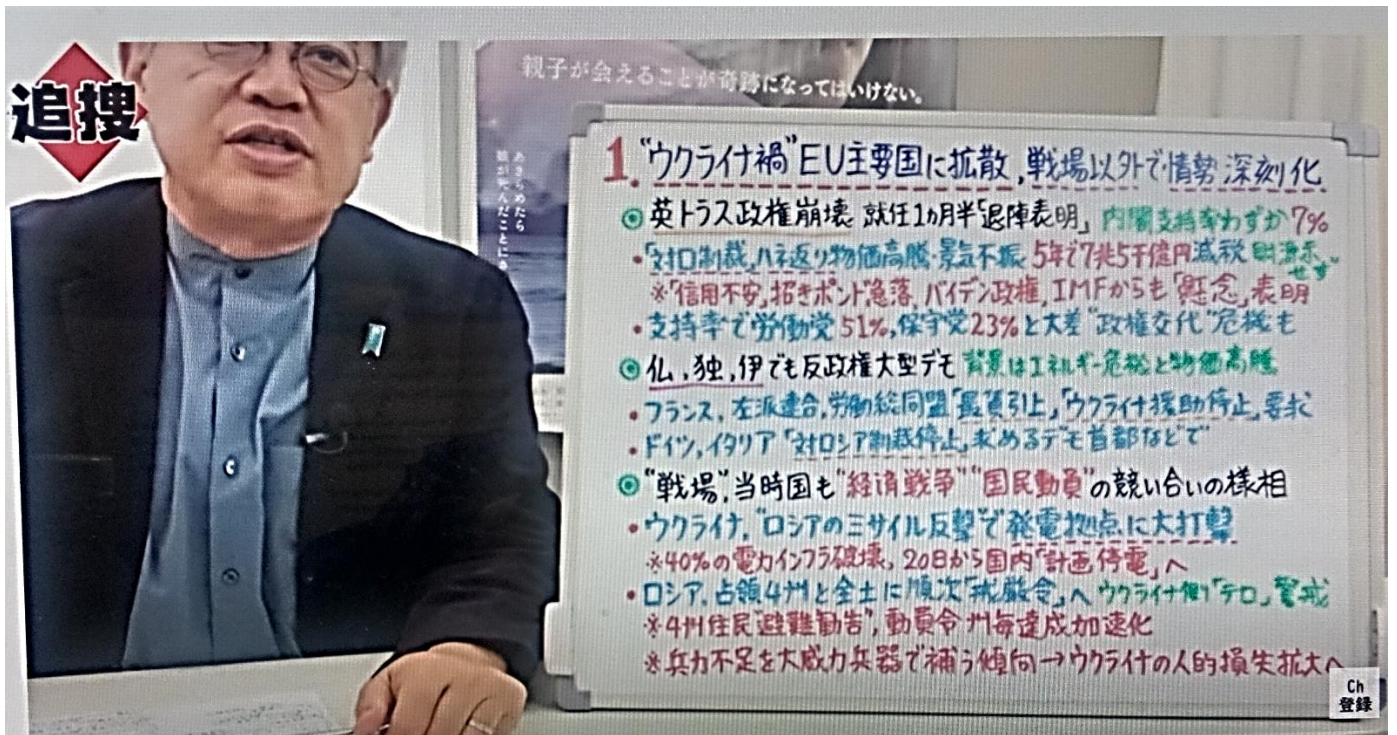 追捜
親子が会えることが奇跡になってはいけない。
あきらめたら
娘が死んだことにな
1. "ウクライナ禍"EU主要国に拡散,戦場以外で情勢深刻化
◎英トラス政権崩壊 就任1カ月半「退陣表明」 内閣支持率わずか7%
・「対ロ制裁」ハネ返り物価高騰・景気不振 5年で7兆5千億円減税 財源示せず
※「信用不安」招きポンド急落、バイデン政権,IMFからも「懸念」表明
・支持率で労働党51%,保守党23%と大差"政権交代"危機も
◎仏,独,伊でも反政権大型デモ 背景はエネルギー危機と物価高騰
・フランス,左派連合,労働総同盟「最賃引上」,「ウクライナ援助停止」要求
・ドイツ,イタリア「対ロシア制裁停止」求めるデモ首都などで
◎"戦場"当時国も"経済戦争""国民動員"の競い合いの様相
・ウクライナ,"ロシアのミサイル反撃"で発電拠点に大打撃
※40%の電力インフラ破壊、20日から国内「計画停電」へ
・ロシア,占領4州と全土に順次「戒厳令」へ ウクライナ側「テロ」警戒
※4州住民"避難勧告",動員令州毎達成加速化
※兵力不足を大威力兵器で補う傾向→ウクライナの人的損失拡大へ
Ch
登録